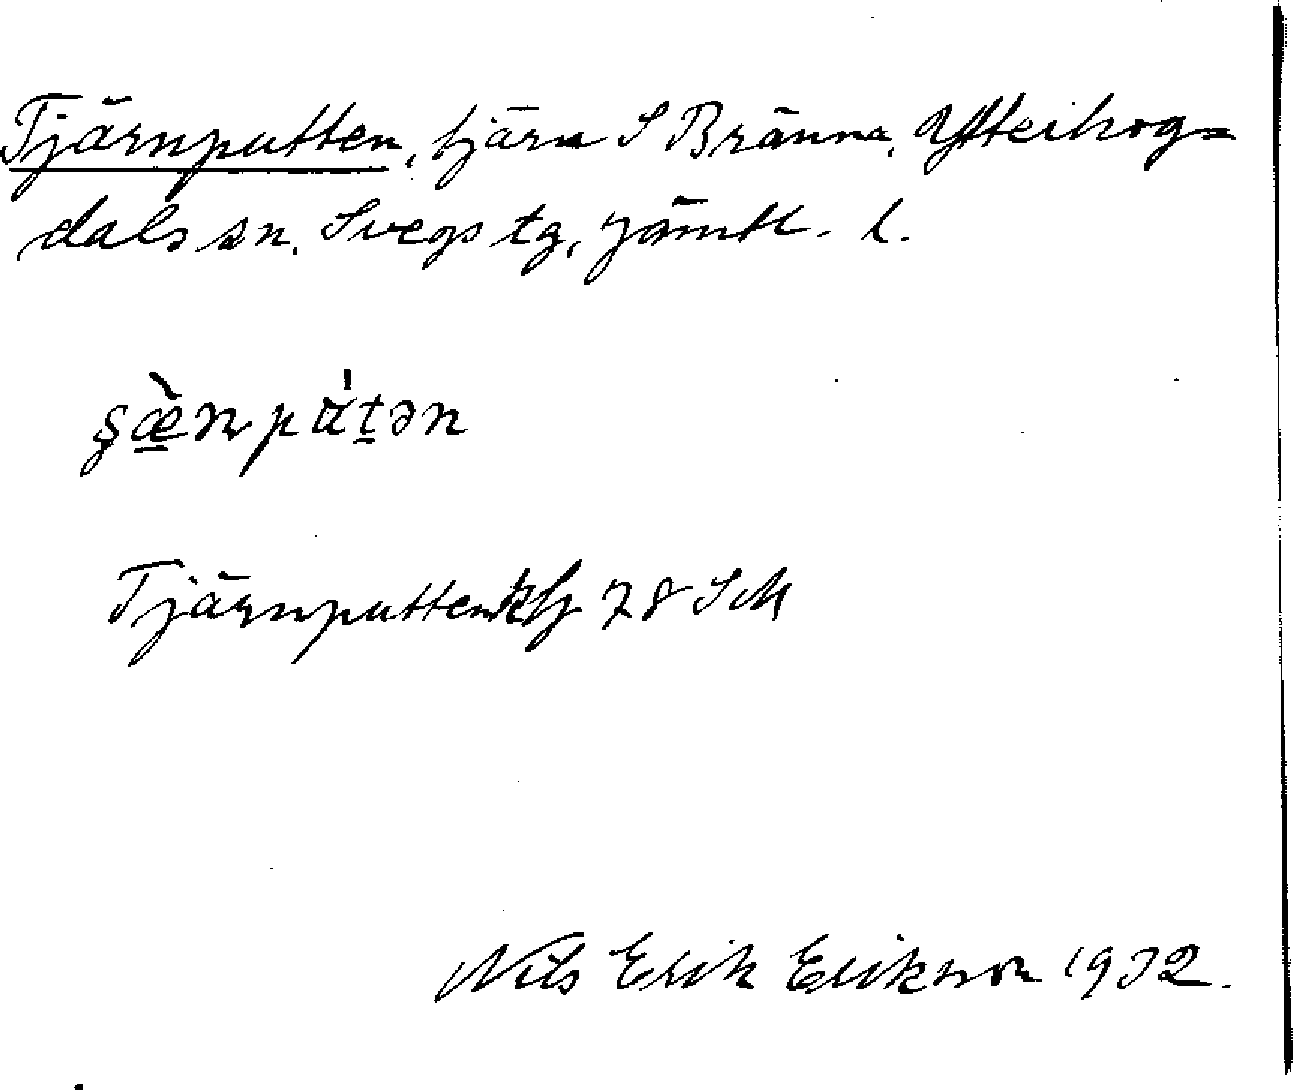 Tjärnputten, tjärn S Bränna, Ytterhog=
dals sn. Svegs tg, Jämtl. l.
ʂæ̠̀n pα̍t̠ən
Tjärnputten 78 SM
Nils Erik Erikson 1932.